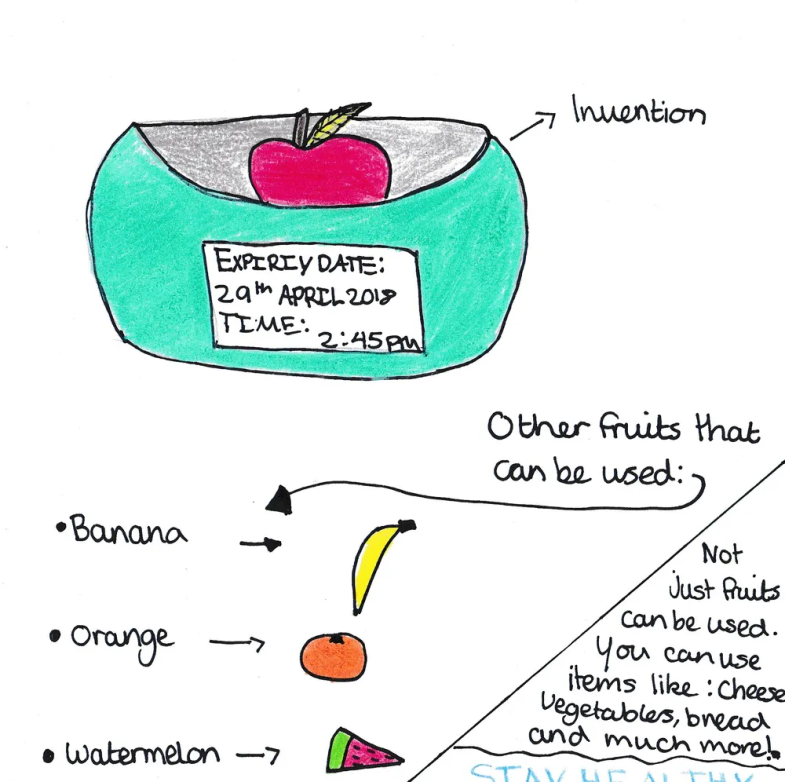 Invention
EXPIRIY DATE:
29th APRIL 2018
TIME:
2:45pm
Other fruits that
can be used:
• Banana
• Orange
• Watermelon
Not
just fruits
can be used.
You can use
items like : cheese
vegetables, bread
and much more!.
STAY HEALTHY